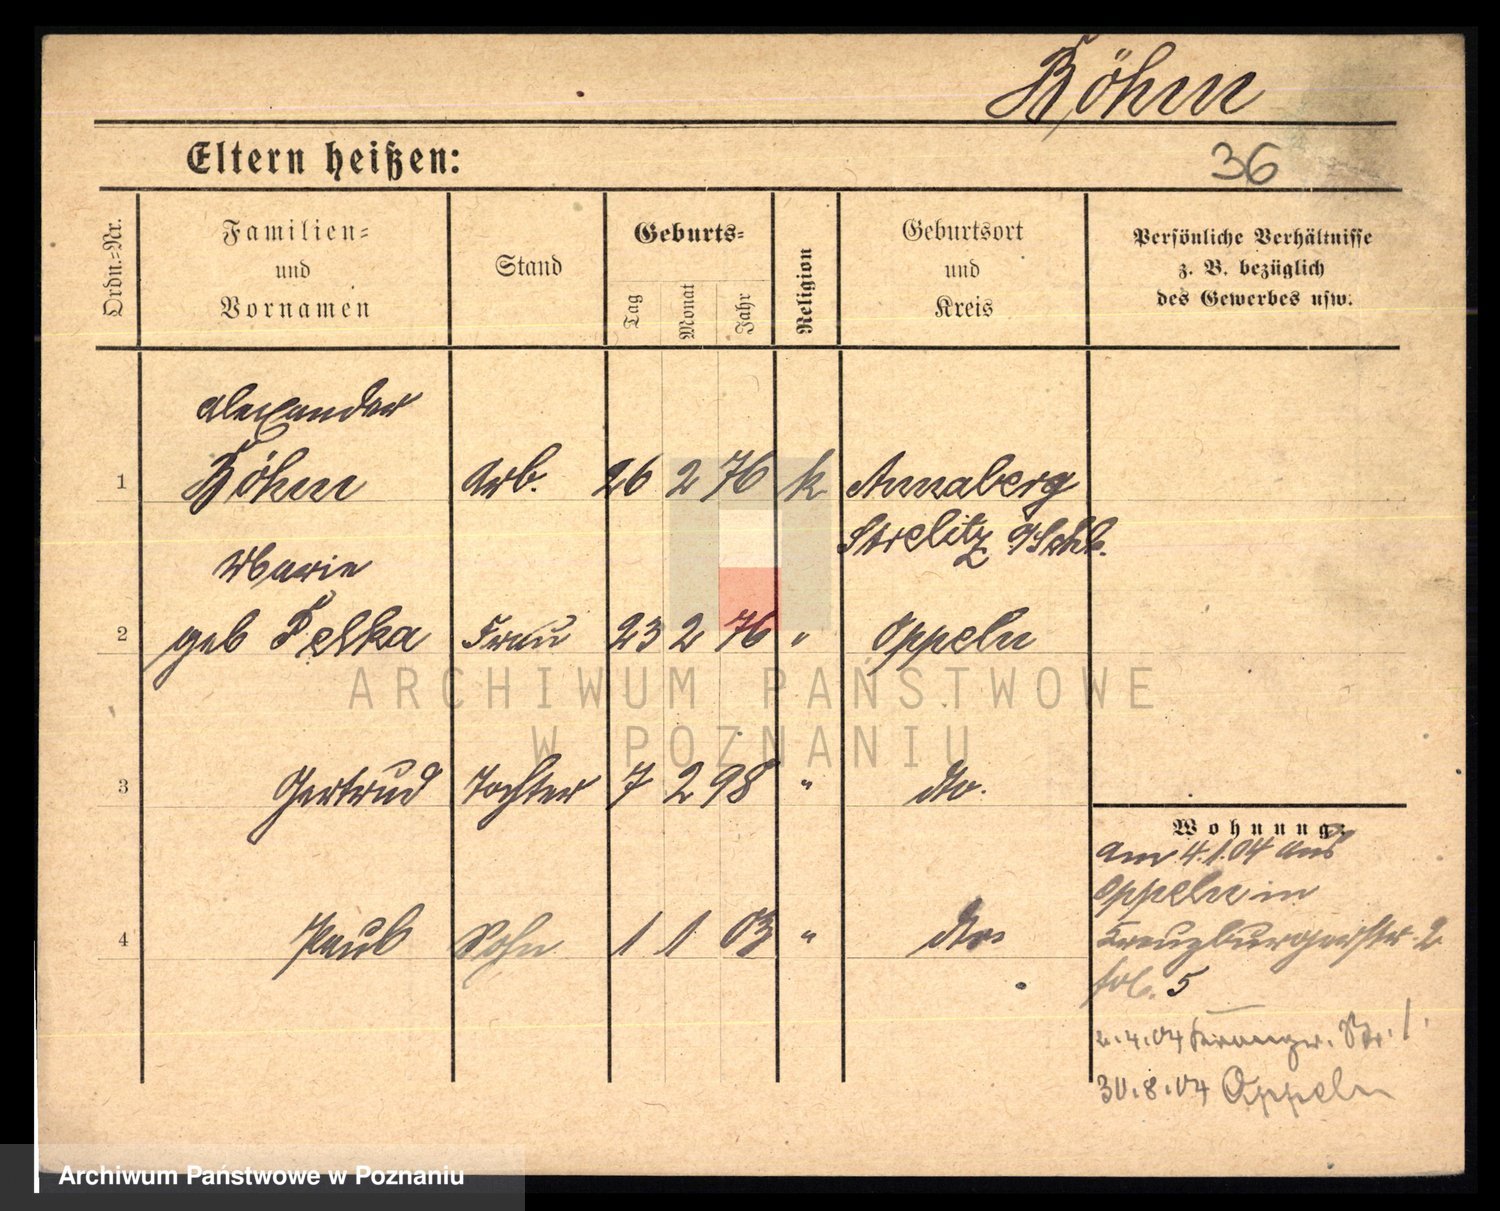 Böhm
Eltern heißen:
36
Ordn.-Nr.
Familien-
und
Vornamen
Stand
Geburts-
Tag
Monat
Jahr
Religion
Geburtsort
und
Kreis
Persönliche Verhältnisse
z. B. bezüglich
des Gewerbes usw.
Alexander
1 Böhm Arb. 26 2 76 k Annaberg
Strelitz
Marie
2 geb Felka Frau 23 2 76 " Oppeln
ARCHIWUM PAŃSTWOWE
W POZNANIU
3 Gertrud Tochter 7 2 98 " dto.
4 Paul Sohn 1 1 03 " dto.
Wohnung:
am 4.1.04 aus
Oppeln in
Kreuzburgerstr. 2
fol. 5
2.4.04 Str. 1.
30.8.04 Oppeln
Archiwum Państwowe w Poznaniu